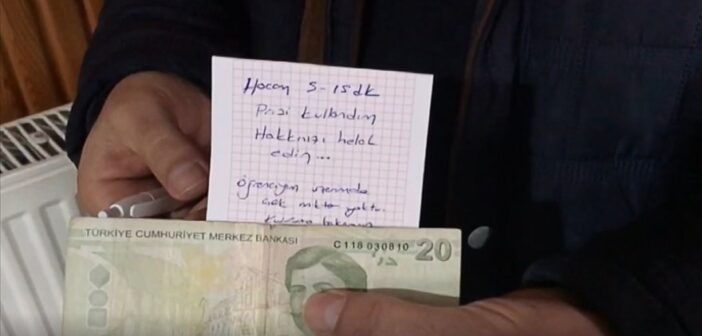 Hocam 5-15dk
Prizi kullandım
Hakkınızı helal
edin...
Öğrenciyim üzerimde
çok miktar yoktu.
Kusura bakmayın
TÜRKİYE CUMHURİYET MERKEZ BANKASI
C118 030810 20